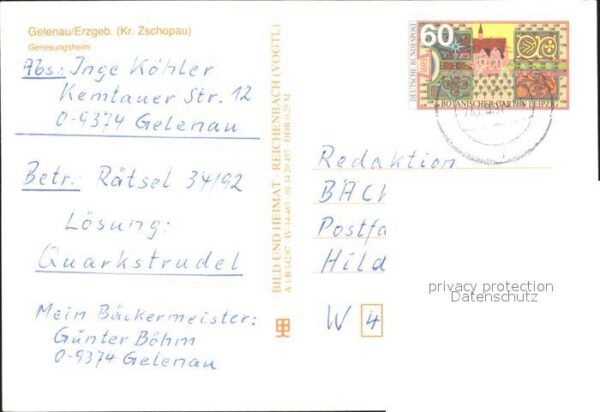 Gelenau/Erzgeb. (Kr. Zschopau)
Genesungsheim
Abs.: Inge Köhler
Kemtauer Str. 12
O-9374 Gelenau
Betr.: Rätsel 34/92
Lösung:
Quarkstrudel
Mein Bäckermeister:
Günter Böhm
O-9374 Gelenau
BILD UND HEIMAT · REICHENBACH (VOGTL)
60
DEUTSCHE BUNDESPOST
BOTANISCHER GARTEN LEIPZIG
Redaktion
BÄCK
Postfa
Hild
W 4
privacy protection
Datenschutz